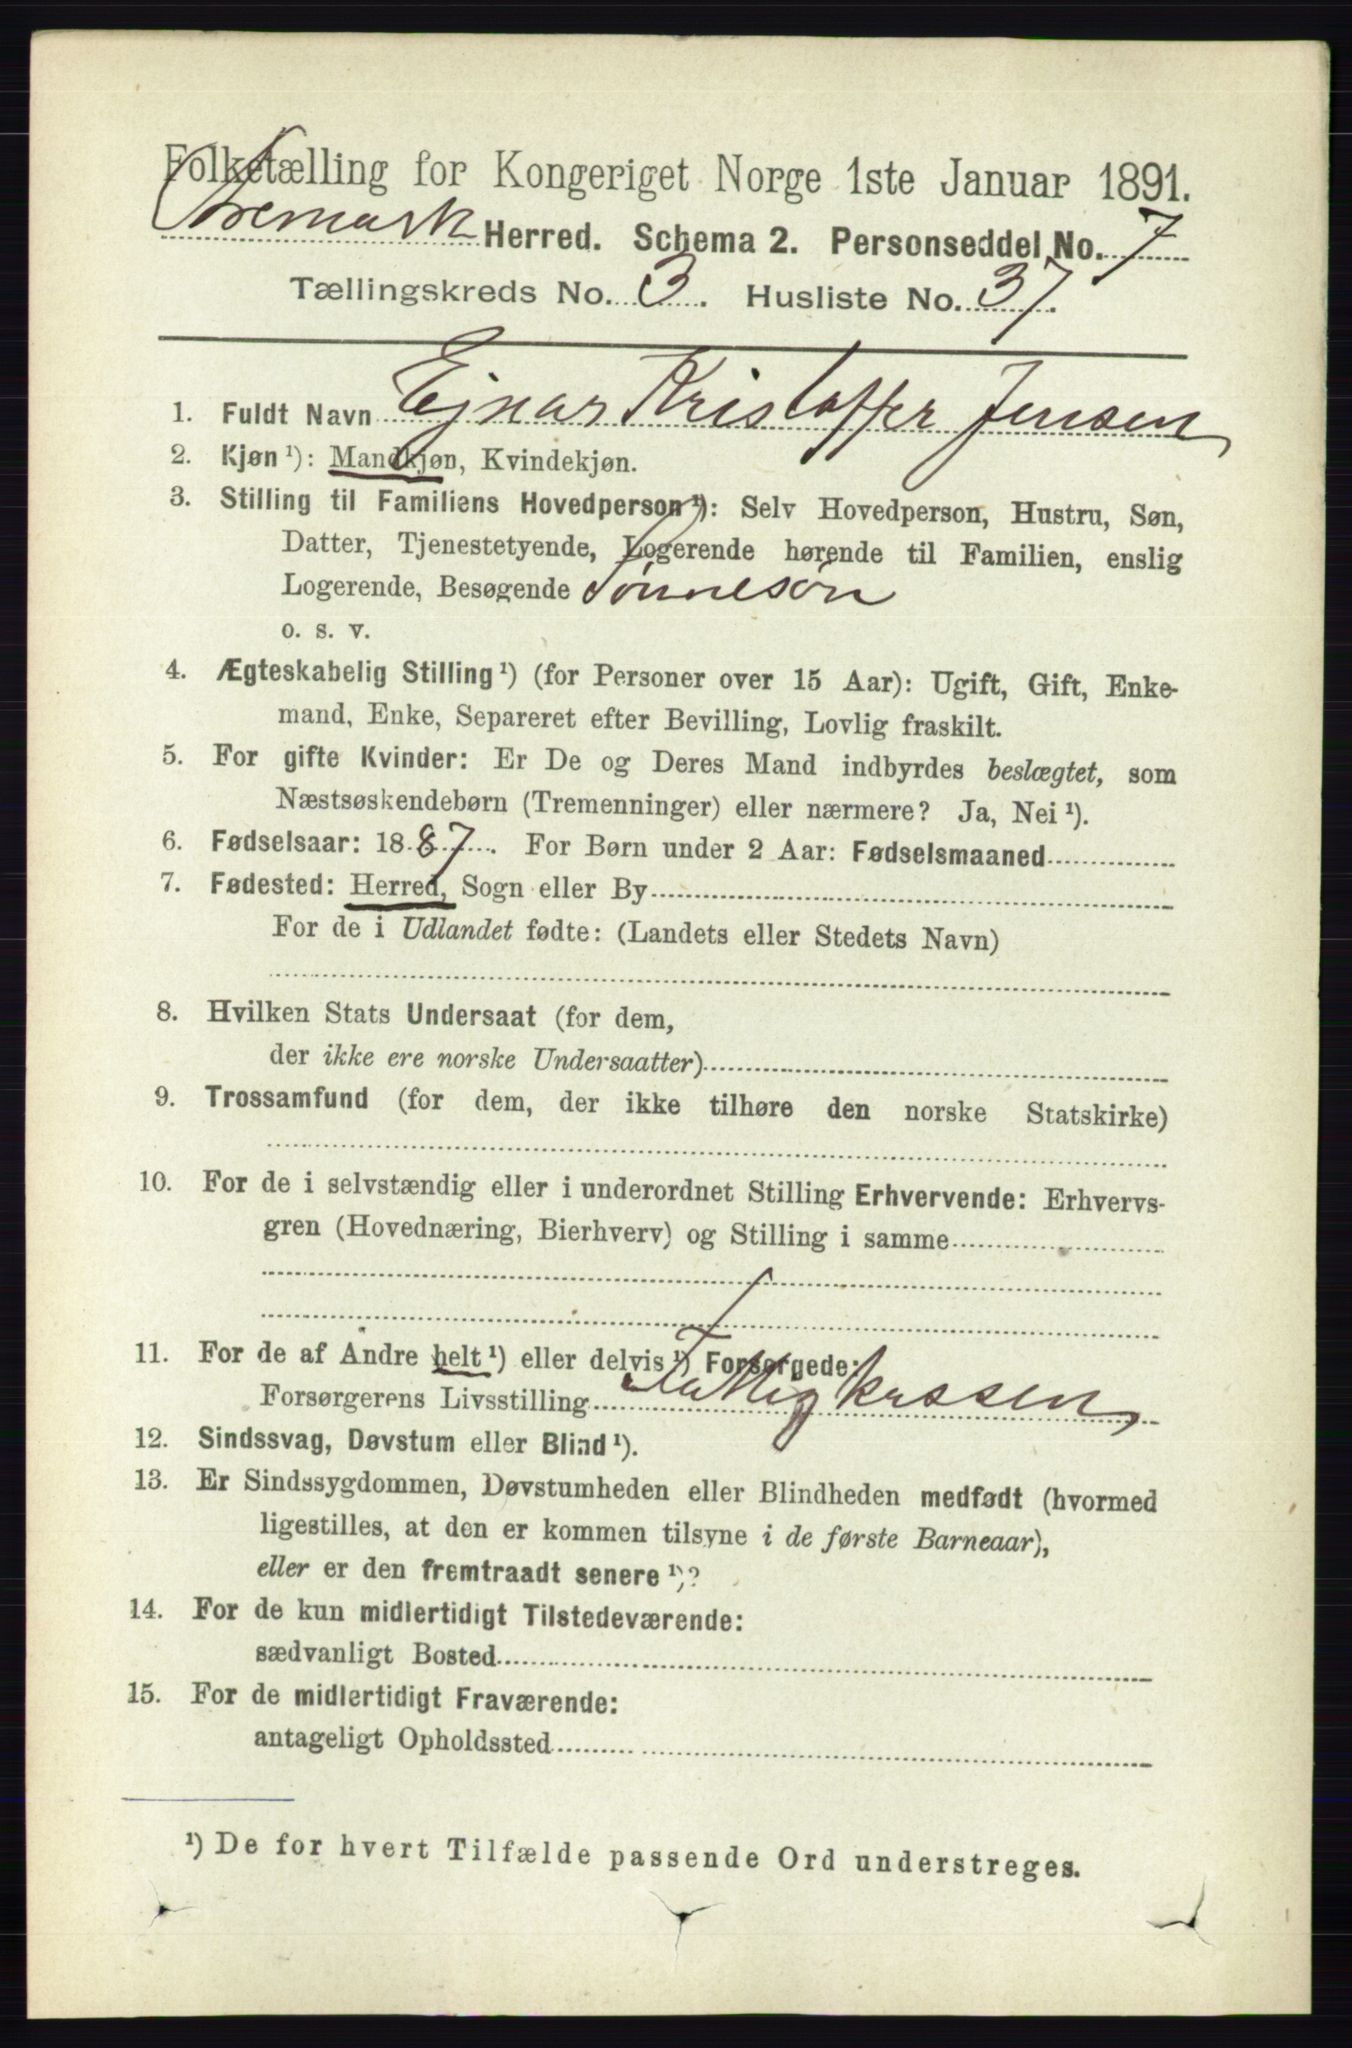 Folketælling for Kongeriget Norge 1ste Januar 1891.
Aremark Herred. Schema 2. Personseddel No. 7
Tællingskreds No. 3. Husliste No. 37.
1. Fuldt Navn Ejnar Kristoffer Jensen
2. Kjøn ¹): Mandkjøn, Kvindekjøn.
3. Stilling til Familiens Hovedperson ¹): Selv Hovedperson, Hustru, Søn,
Datter, Tjenestetyende, Logerende hørende til Familien, enslig
Logerende, Besøgende Sønnesøn
o. s. v.
4. Ægteskabelig Stilling ¹) (for Personer over 15 Aar): Ugift, Gift, Enke-
mand, Enke, Separeret efter Bevilling, Lovlig fraskilt.
5. For gifte Kvinder: Er De og Deres Mand indbyrdes beslægtet, som
Næstsøskendebørn (Tremenninger) eller nærmere? Ja, Nei ¹).
6. Fødselsaar: 1887. For Børn under 2 Aar: Fødselsmaaned
7. Fødested: Herred, Sogn eller By
For de i Udlandet fødte: (Landets eller Stedets Navn)
8. Hvilken Stats Undersaat (for dem,
der ikke ere norske Undersaatter)
9. Trossamfund (for dem, der ikke tilhøre den norske Statskirke)
10. For de i selvstændig eller i underordnet Stilling Erhvervende: Erhvervs-
gren (Hovednæring, Bierhverv) og Stilling i samme
11. For de af Andre helt ¹) eller delvis ¹) Forsørgede:
Forsørgerens Livsstilling Fattigkassen
12. Sindssvag, Døvstum eller Blind ¹).
13. Er Sindssygdommen, Døvstumheden eller Blindheden medfødt (hvormed
ligestilles, at den er kommen tilsyne i de første Barneaar),
eller er den fremtraadt senere ¹)?
14. For de kun midlertidigt Tilstedeværende:
sædvanligt Bosted
15. For de midlertidigt Fraværende:
antageligt Opholdssted
¹) De for hvert Tilfælde passende Ord understreges.